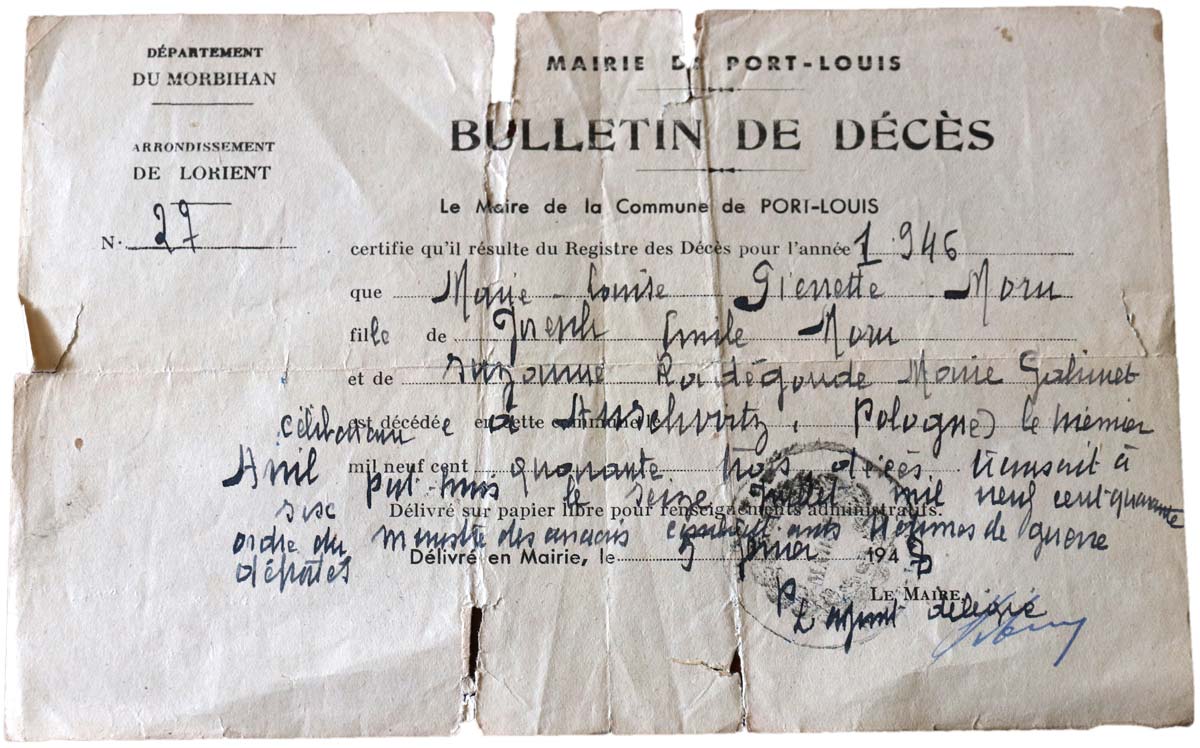 DÉPARTEMENT
DU MORBIHAN
ARRONDISSEMENT
DE LORIENT
N. 27
MAIRIE DE PORT-LOUIS
BULLETIN DE DÉCÈS
Le Maire de la Commune de PORT-LOUIS
certifie qu'il résulte du Registre des Décès pour l'année 1 946
que Marie-Louise Pierrette Moru
fille de Joseph Emile Moru
et de Suzanne Radégonde Marie Gahinet
est décédée en cette commune le
célibataire à Auschvitz, Pologne) le premier
Avril mil neuf cent quarante trois, décès transcrit à
Port-Louis le seize Juillet mil neuf cent quarante
six
Délivré sur papier libre pour renseignements administratifs.
ordre du ministre des anciens combattants victimes de guerre
Délivré en Mairie, le 5 194
déportés
LE MAIRE,
L'adjoint délégué
MAIRIE